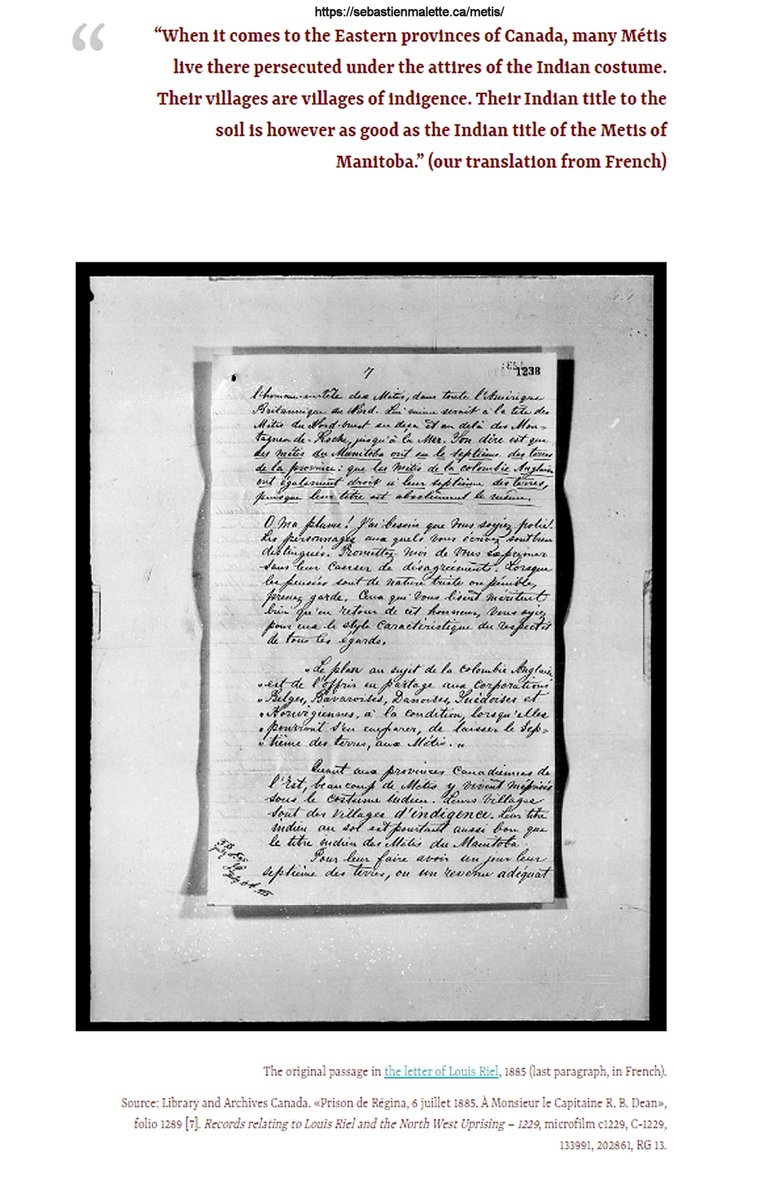 https://sebastienmalette.ca/metis/
“When it comes to the Eastern provinces of Canada, many Métis
live there persecuted under the attires of the Indian costume.
Their villages are villages of indigence. Their Indian title to the
soil is however as good as the Indian title of the Metis of
Manitoba.” (our translation from French)
7
1238
l'homme-en-tête des Métis, dans toute l'Amérique
Britannique du Nord. Lui même serait à la tête des
Métis du Nord-ouest en deça et au delà des Mon-
tagnes de-Roche, jusqu'à la Mer. Son dire est que
les métis du Manitoba ont eu le septième des terres
de la province: que les Métis de la colombie Anglaise
ont également droit à leur septième des terres,
puisque leur titre est absolument le même.
O ma plume! J'ai besoin que vous soyiez polie!
Les personnages aux quels vous écrivez sont bien
distingués. Promettez moi de vous exprimer
sans leur causer de désagréments. Lorsque
les pensées sont de nature triste ou pénible,
prenez garde. Ceux qui vous lisent méritent
bien qu'en retour de cet honneur, vous ayiez
pour eux le style caractéristique du respect et
de tous les égards.
"Le plan au sujet de la colombie Anglaise
"est de l'offrir en partage aux corporations
"Belges, Bavaroises, Danoises, Suédoises et
"Norvégiennes, à la condition, lorsqu'elles
"pourront s'en emparer, de laisser le sep-
"tième des terres, aux Métis."
Quant aux provinces Canadiennes de
l'Est, beaucoup de Métis y vivent méprisés
sous le costume indien. Leurs villages
sont des villages d'indigence. Leur titre
indien au sol est pourtant aussi bon que
le titre indien des Métis du Manitoba.
Pour leur faire avoir un jour leur
septième des terres, ou un revenu adéquat
The original passage in the letter of Louis Riel, 1885 (last paragraph, in French).
Source: Library and Archives Canada. «Prison de Régina, 6 juillet 1885. À Monsieur le Capitaine R. B. Dean»,
folio 1289 [7]. Records relating to Louis Riel and the North West Uprising – 1229, microfilm c1229, C-1229,
133991, 202861, RG 13.